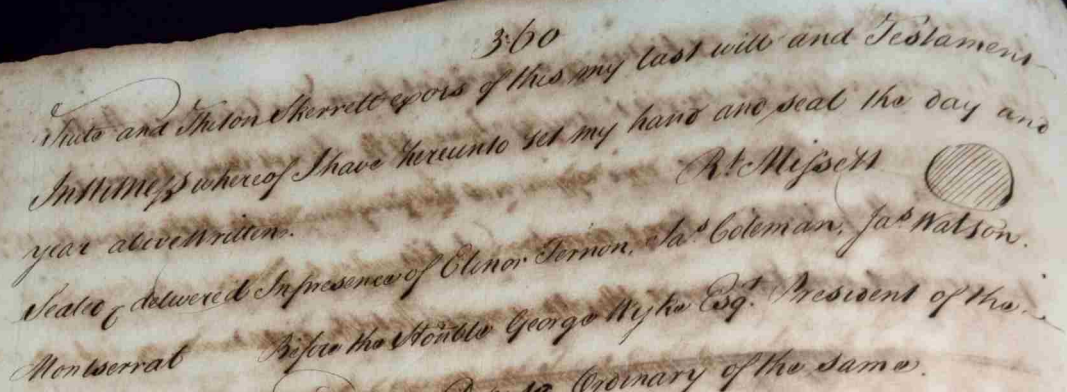 360
Tuite and Thilon Skerrett exors of this my last will and Testament
In Witness whereof I have hereunto set my hand and seal the day and
year above Written.
Rt. Missett
Sealed & delivered In presence of Elinor Ternon, Jas Coleman, Jas Watson.
Montserrat Before the Honble George Wyke Esqr. President of the
Ordinary of the same.